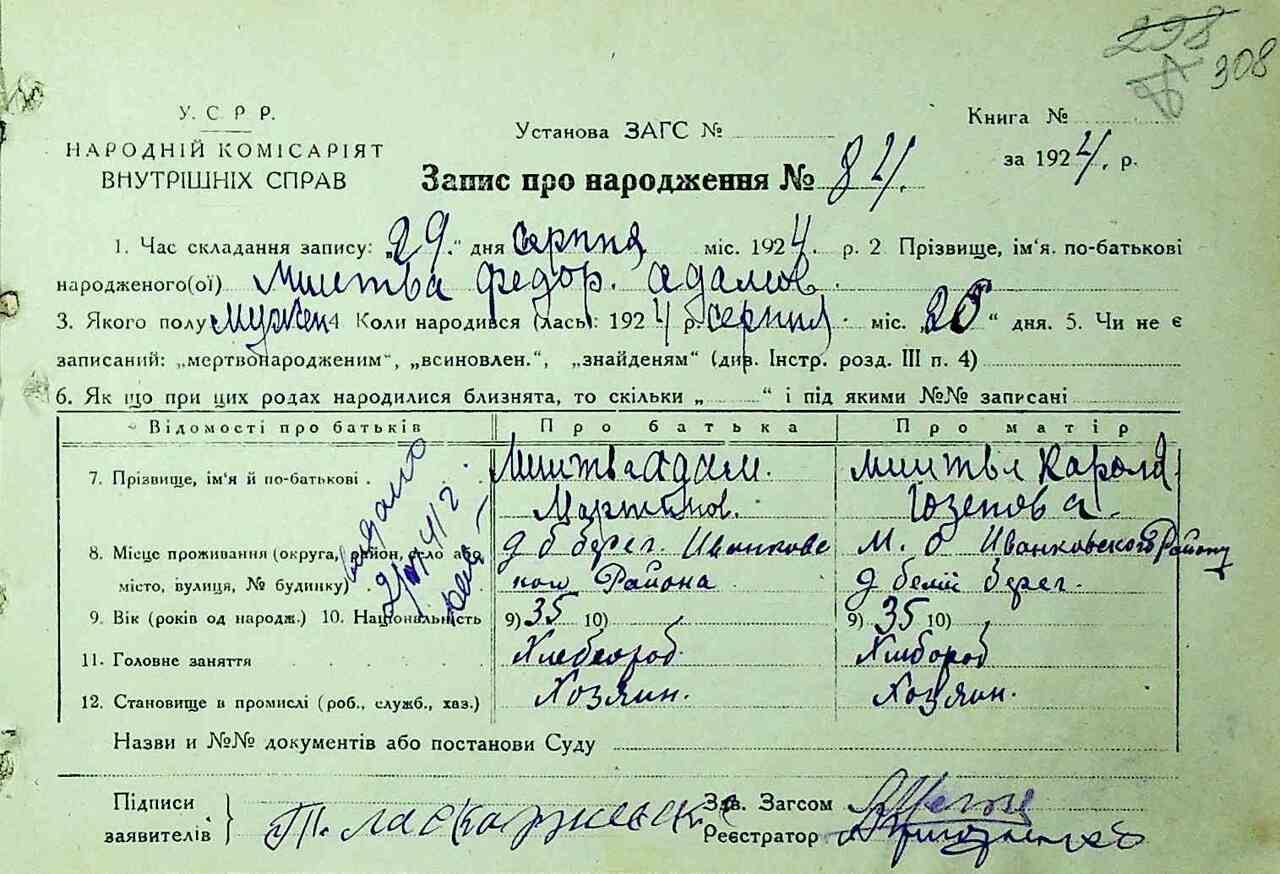 298
308
У. С. Р Р.
НАРОДНІЙ КОМІСАРІЯТ
ВНУТРІШНІХ СПРАВ
Установа ЗАГС №
Книга №
за 1924. р.
Запис про народження № 84.
1. Час складання запису: „29.“ дня серпня міс. 1924. р. 2 Прізвище, ім'я. по-батькові
народженого(ої) федор. адамов.
3. Якого полу Мужен 4 Коли народився (лась): 1924 р. серпня міс. „26“ дня. 5. Чи не є
записаний: „мертвонародженим“, „всиновлен.“, „знайденям“ (див. Інстр. розд. III п. 4)
6. Як що при цих родах народилися близнята, то скільки „ “ і під якими №№ записані
Відомості про батьків Про батька Про матір
7. Прізвище, ім'я й по-батькові . адам. Кароля.
Мартинов.
8. Місце проживання (округа, район, село або д б берег. Иванковс М. о Иванковского Району
місто, вулиця, № будинку) . кого Района д белий берег.
9. Вік (років од народж.) 10. Національність 9) 35 10) 9) 35 10)
11. Головне заняття Хлебороб. Хлибороб
12. Становище в промислі (роб., служб., хаз.) Хозяин. Хозяин.
Назви и №№ документів або постанови Суду
Підписи
заявителів }
Зав. Загсом
Реєстратор